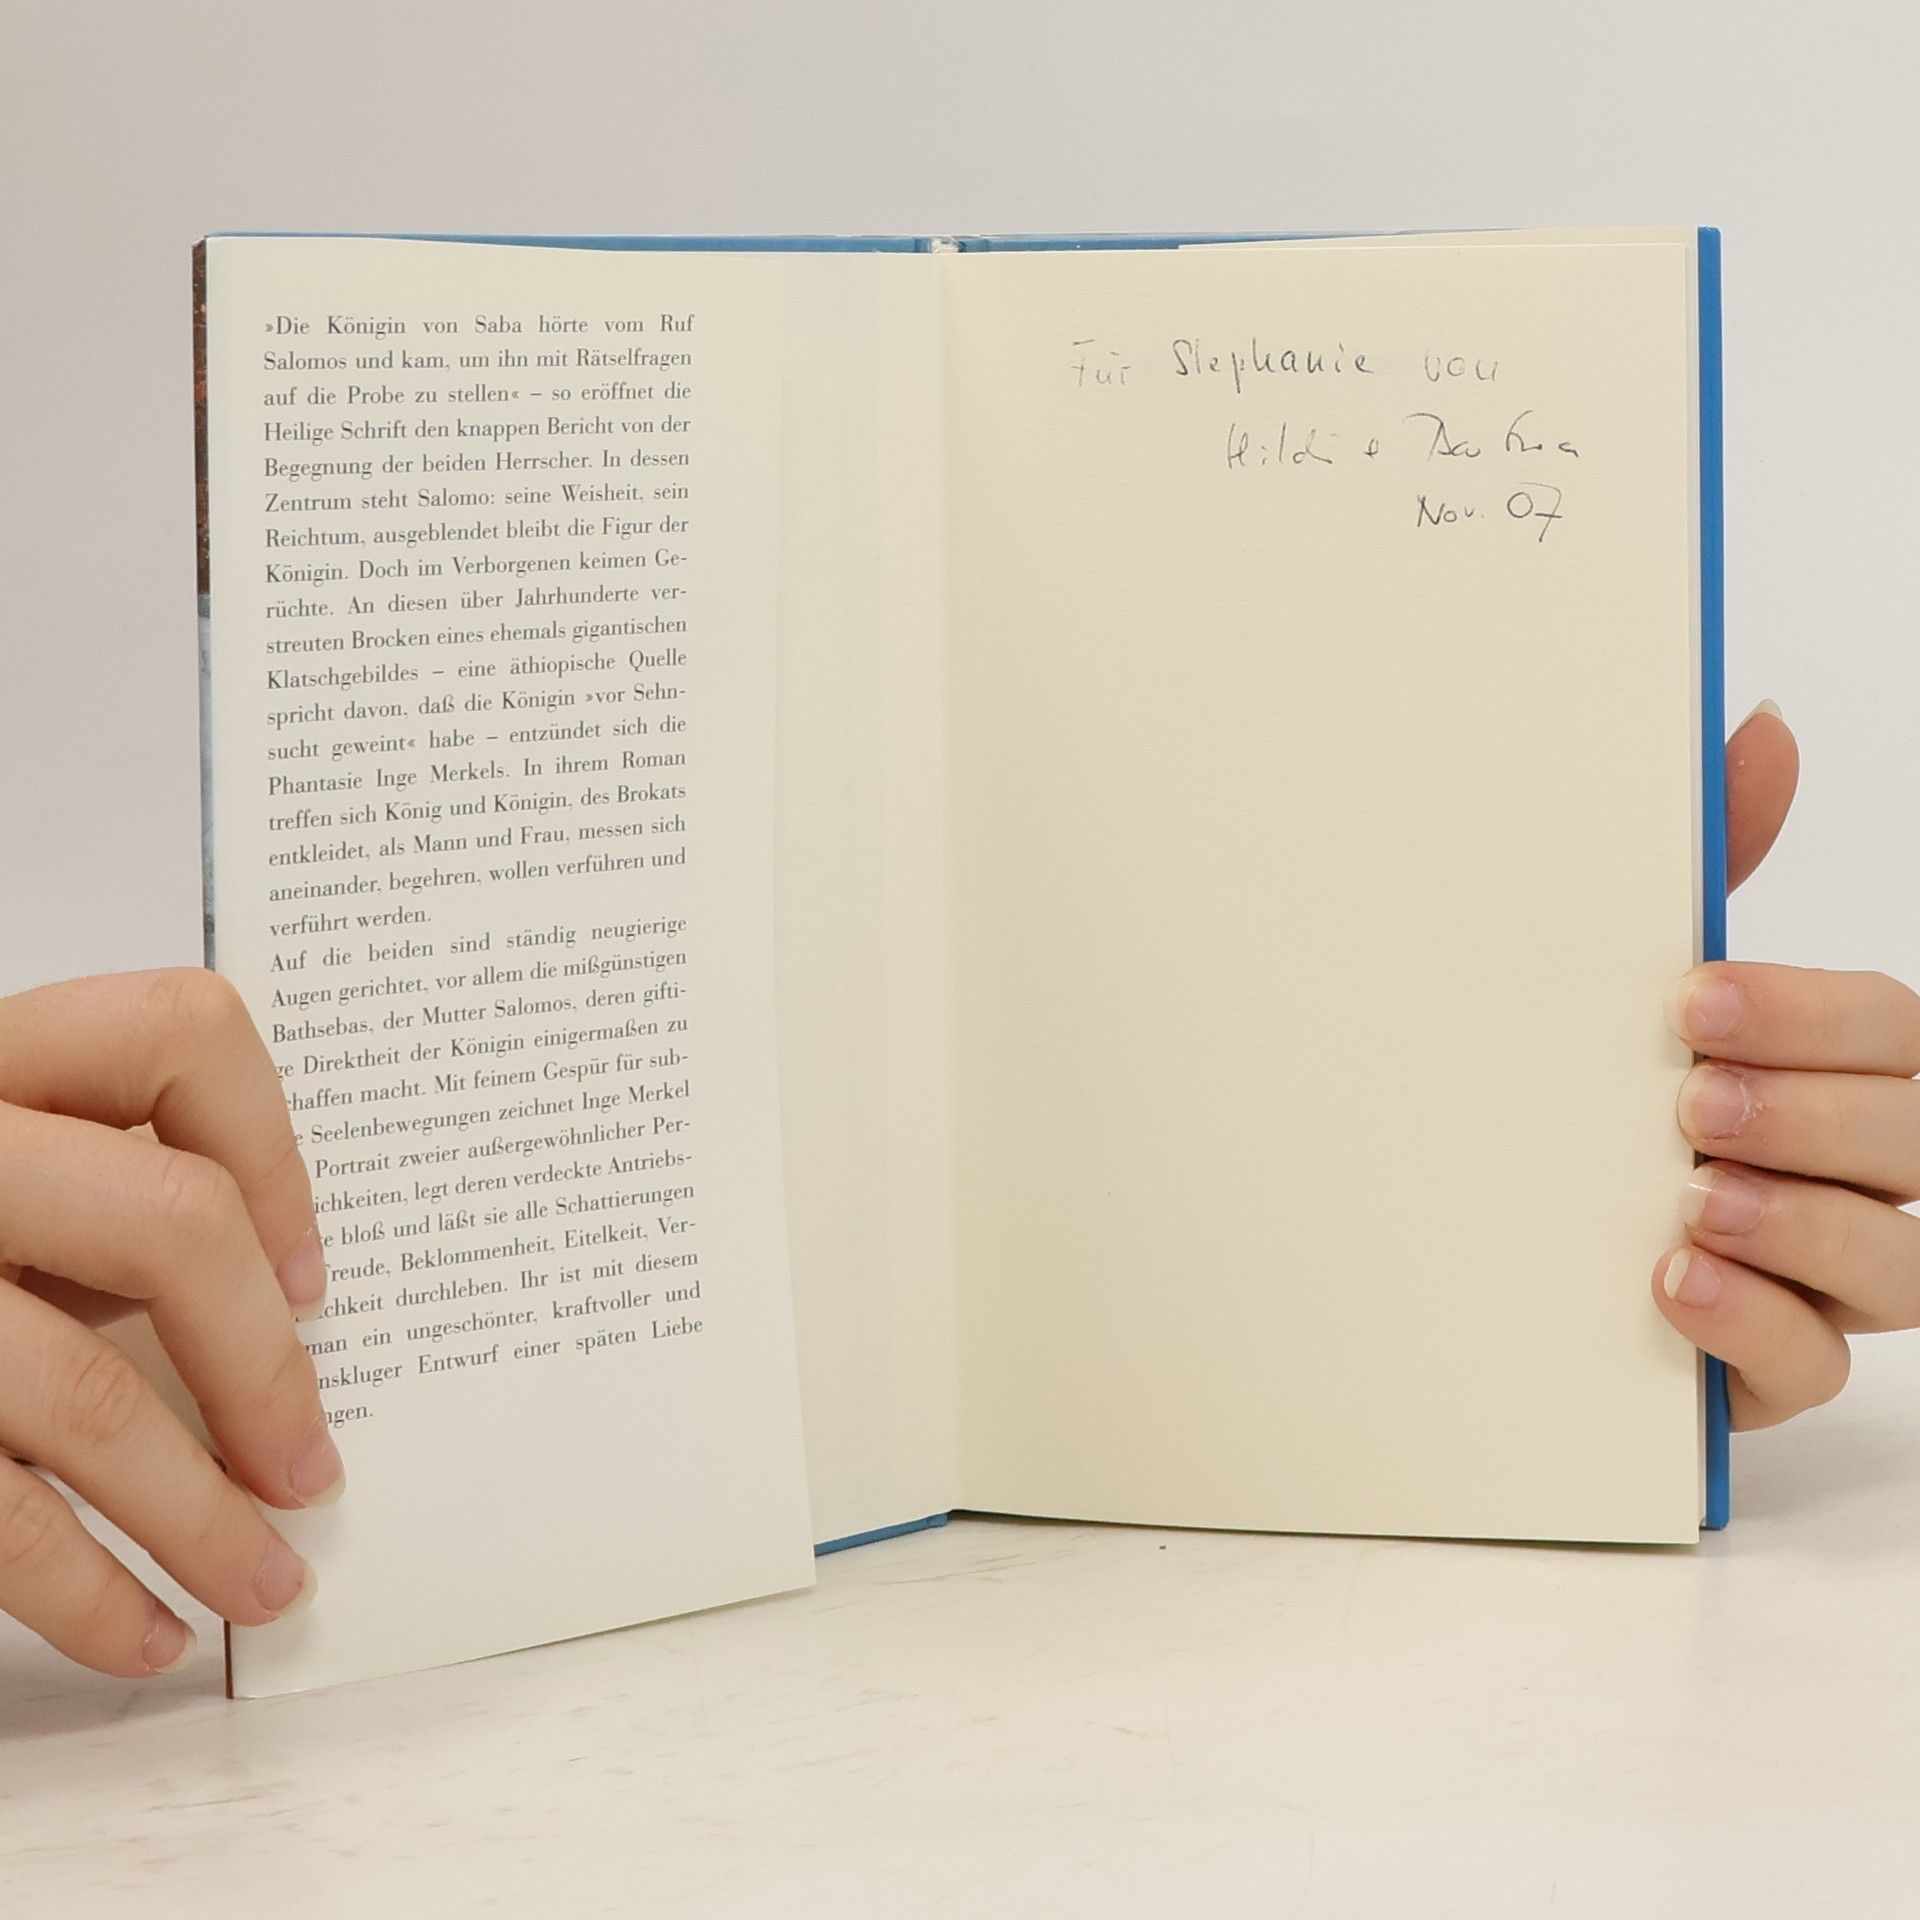 »Die Königin von Saba hörte vom Ruf
Salomos und kam, um ihn mit Rätselfragen
auf die Probe zu stellen« – so eröffnet die
Heilige Schrift den knappen Bericht von der
Begegnung der beiden Herrscher. In dessen
Zentrum steht Salomo: seine Weisheit, sein
Reichtum, ausgeblendet bleibt die Figur der
Königin. Doch im Verborgenen keimen Ge-
rüchte. An diesen über Jahrhunderte ver-
streuten Brocken eines ehemals gigantischen
Klatschgebildes – eine äthiopische Quelle
spricht davon, daß die Königin »vor Sehn-
sucht geweint« habe – entzündet sich die
Phantasie Inge Merkels. In ihrem Roman
treffen sich König und Königin, des Brokats
entkleidet, als Mann und Frau, messen sich
aneinander, begehren, wollen verführen und
verführt werden.
Auf die beiden sind ständig neugierige
Augen gerichtet, vor allem die mißgünstigen
Bathsebas, der Mutter Salomos, deren gifti-
ge Direktheit der Königin einigermaßen zu
chaffen macht. Mit feinem Gespür für sub-
e Seelenbewegungen zeichnet Inge Merkel
Portrait zweier außergewöhnlicher Per-
ichkeiten, legt deren verdeckte Antriebs-
e bloß und läßt sie alle Schattierungen
Freude, Beklommenheit, Eitelkeit, Ver-
chkeit durchleben. Ihr ist mit diesem
man ein ungeschönter, kraftvoller und
nskluger Entwurf einer späten Liebe
ngen.
Für Stephanie von
Hildi +
Nov. 07